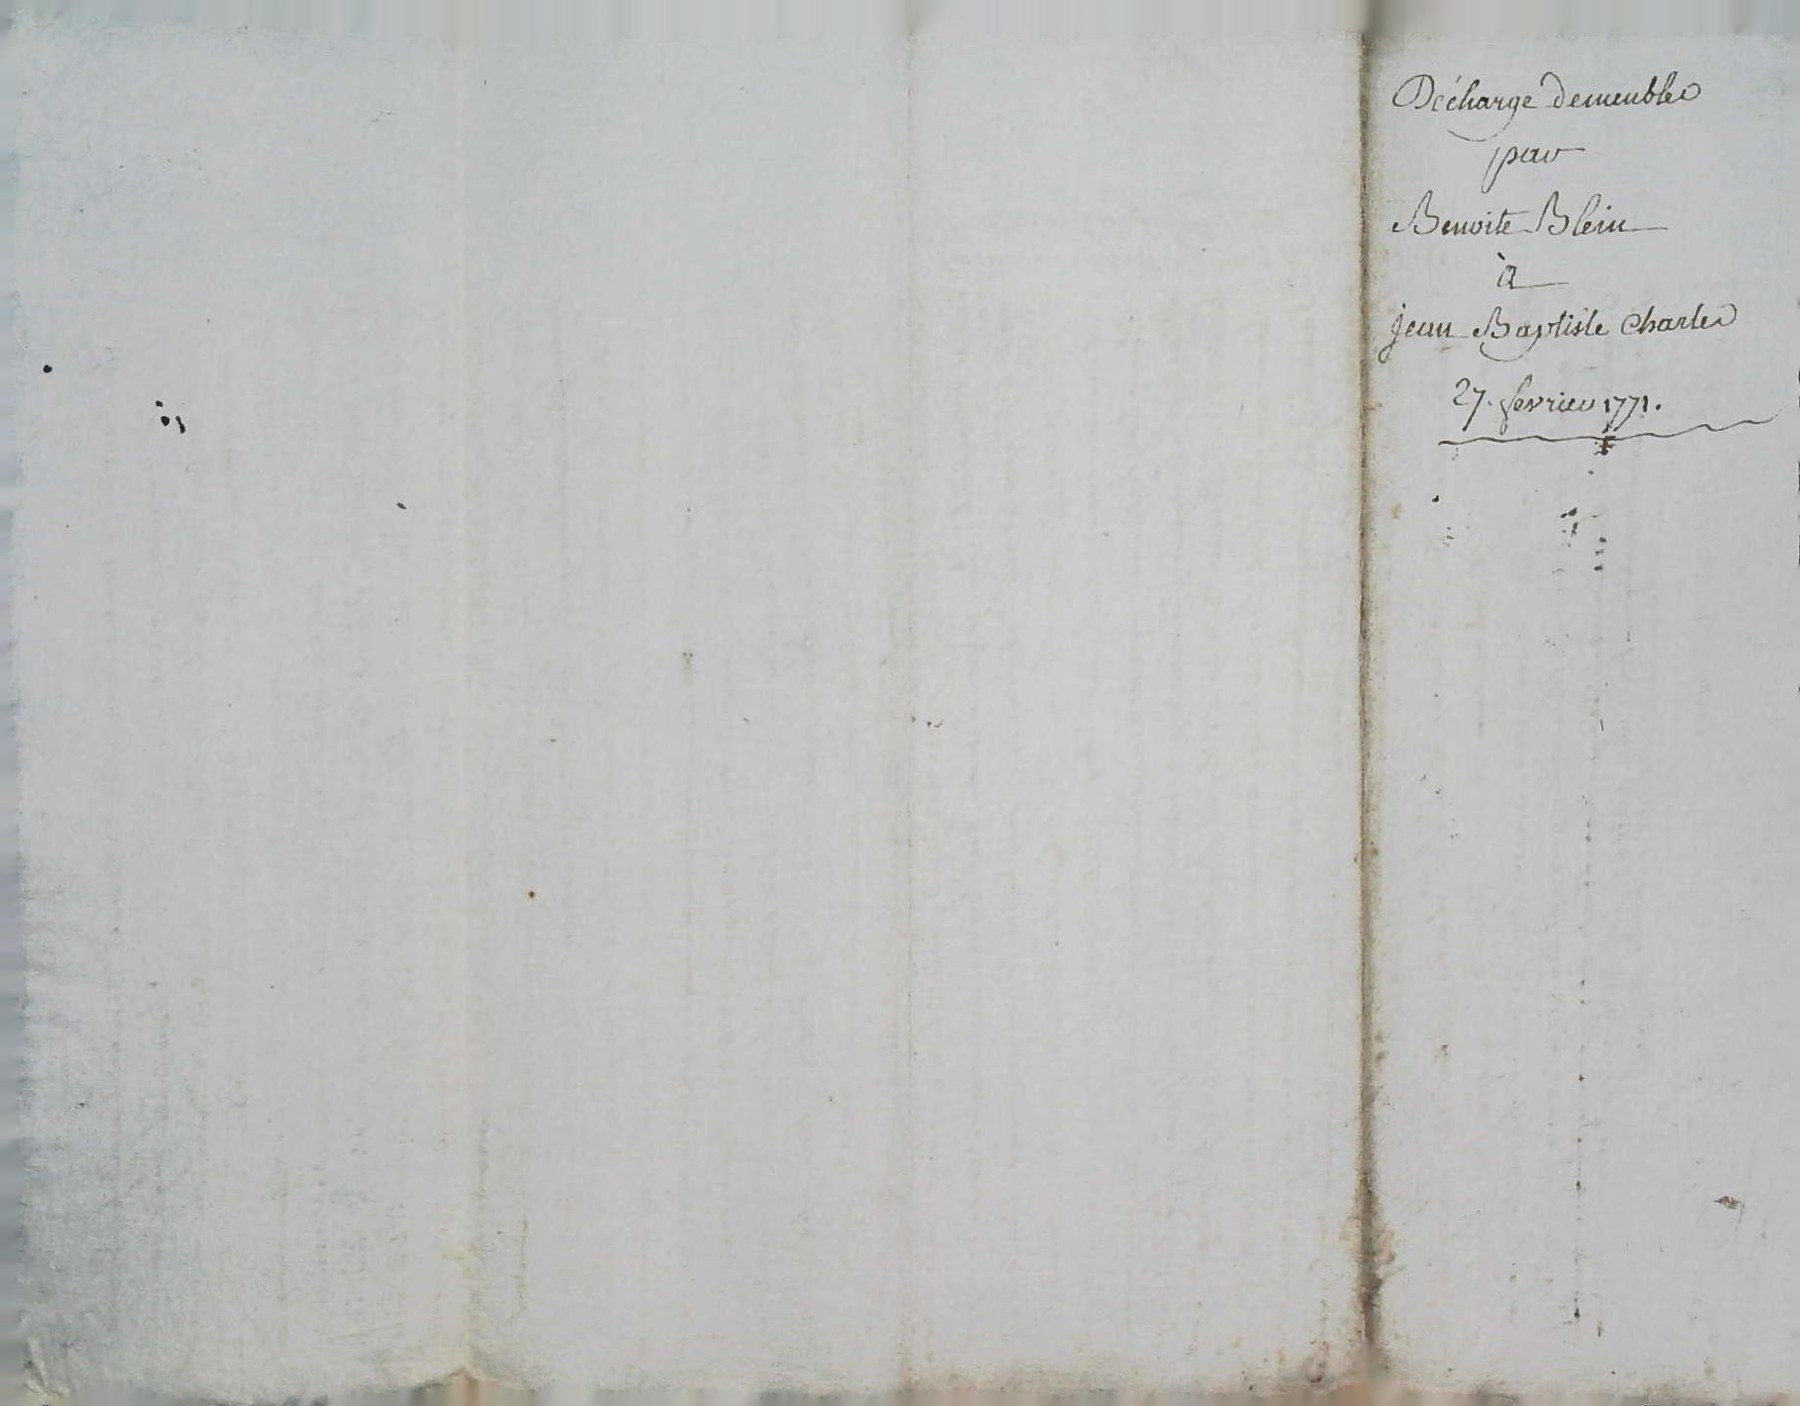 Décharge demeubles
par
Benoite Blein
à
jean Baptiste Charles
27. fevrier 1771.